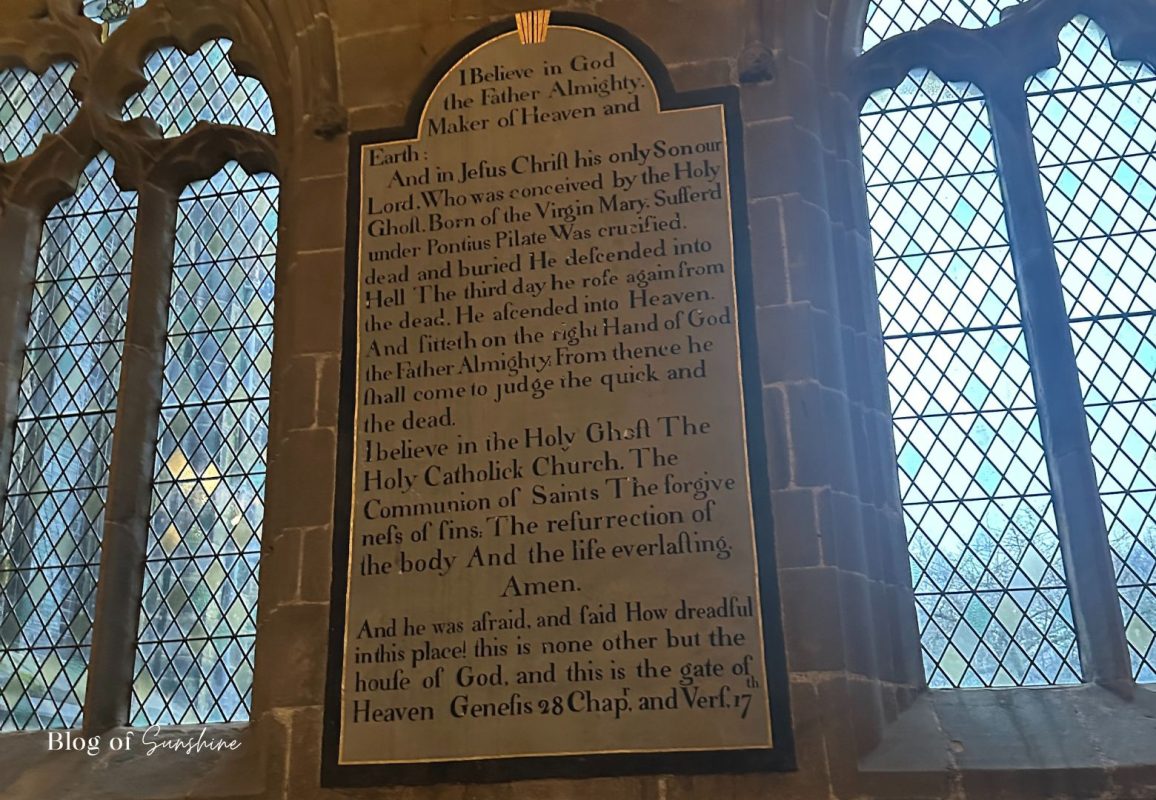 I Believe in God
the Father Almighty.
Maker of Heaven and
Earth:
And in Jeſus Chriſt his only Son our
Lord. Who was conceived by the Holy
Ghoſt. Born of the Virgin Mary. Suffer'd
under Pontius Pilate Was crucified.
dead and buried He deſcended into
Hell The third day he roſe again from
the dead. He aſcended into Heaven.
And ſitteth on the right Hand of God
the Father Almighty. From thence he
ſhall come to judge the quick and
the dead.
I believe in the Holy Ghoſt The
Holy Catholick Church. The
Communion of Saints The forgive
neſs of ſins: The reſurrection of
the body And the life everlaſting.
Amen.
And he was afraid, and ſaid How dreadful
in this place! this is none other but the
houſe of God, and this is the gate of
Heaven Geneſis 28 Chapr. and Verſ. 17th
Blog of Sunshine